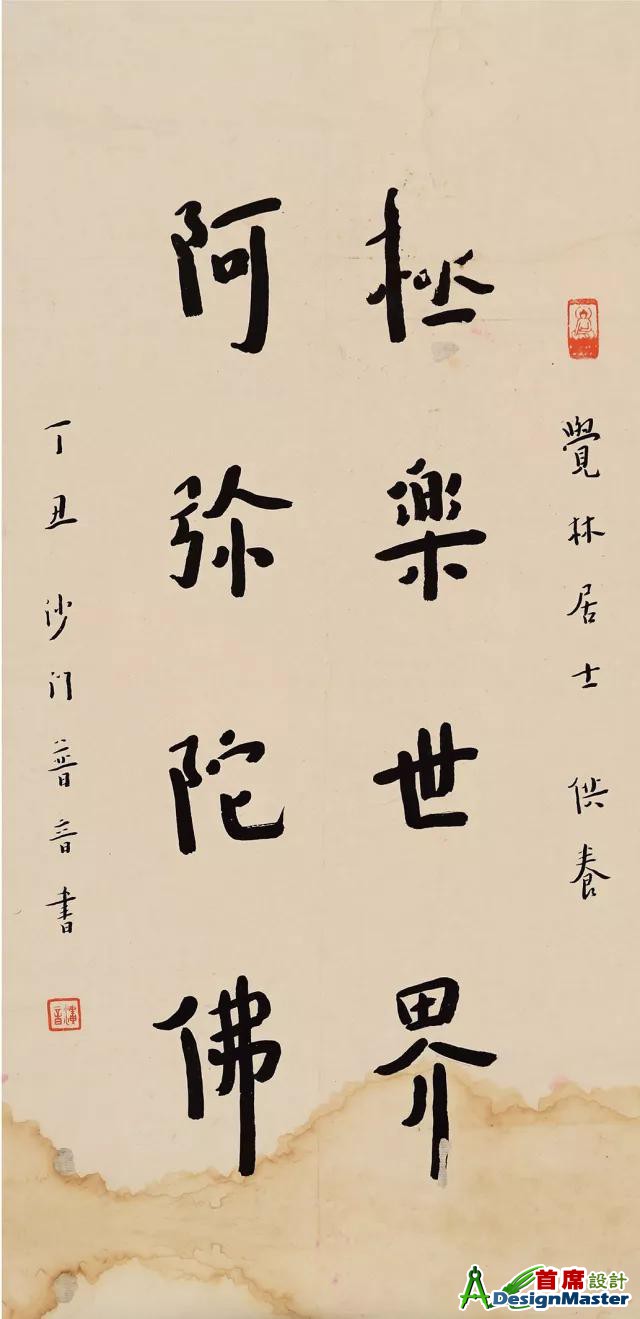 覺林居士 供養
極樂世界
阿弥陀佛
丁丑 沙门普音書
演音
首席設計
DesignMaster